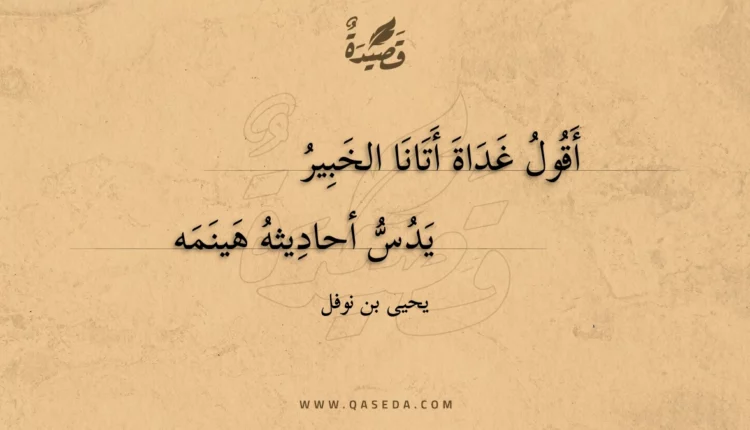 قَصِيْدَةٌ
أَقُولُ غَدَاةَ أَتَانَا الخَبِيرُ
يَدُسُّ أحادِيثهُ هَينَمَه
يحيى بن نوفل
WWW.QASEDA.COM